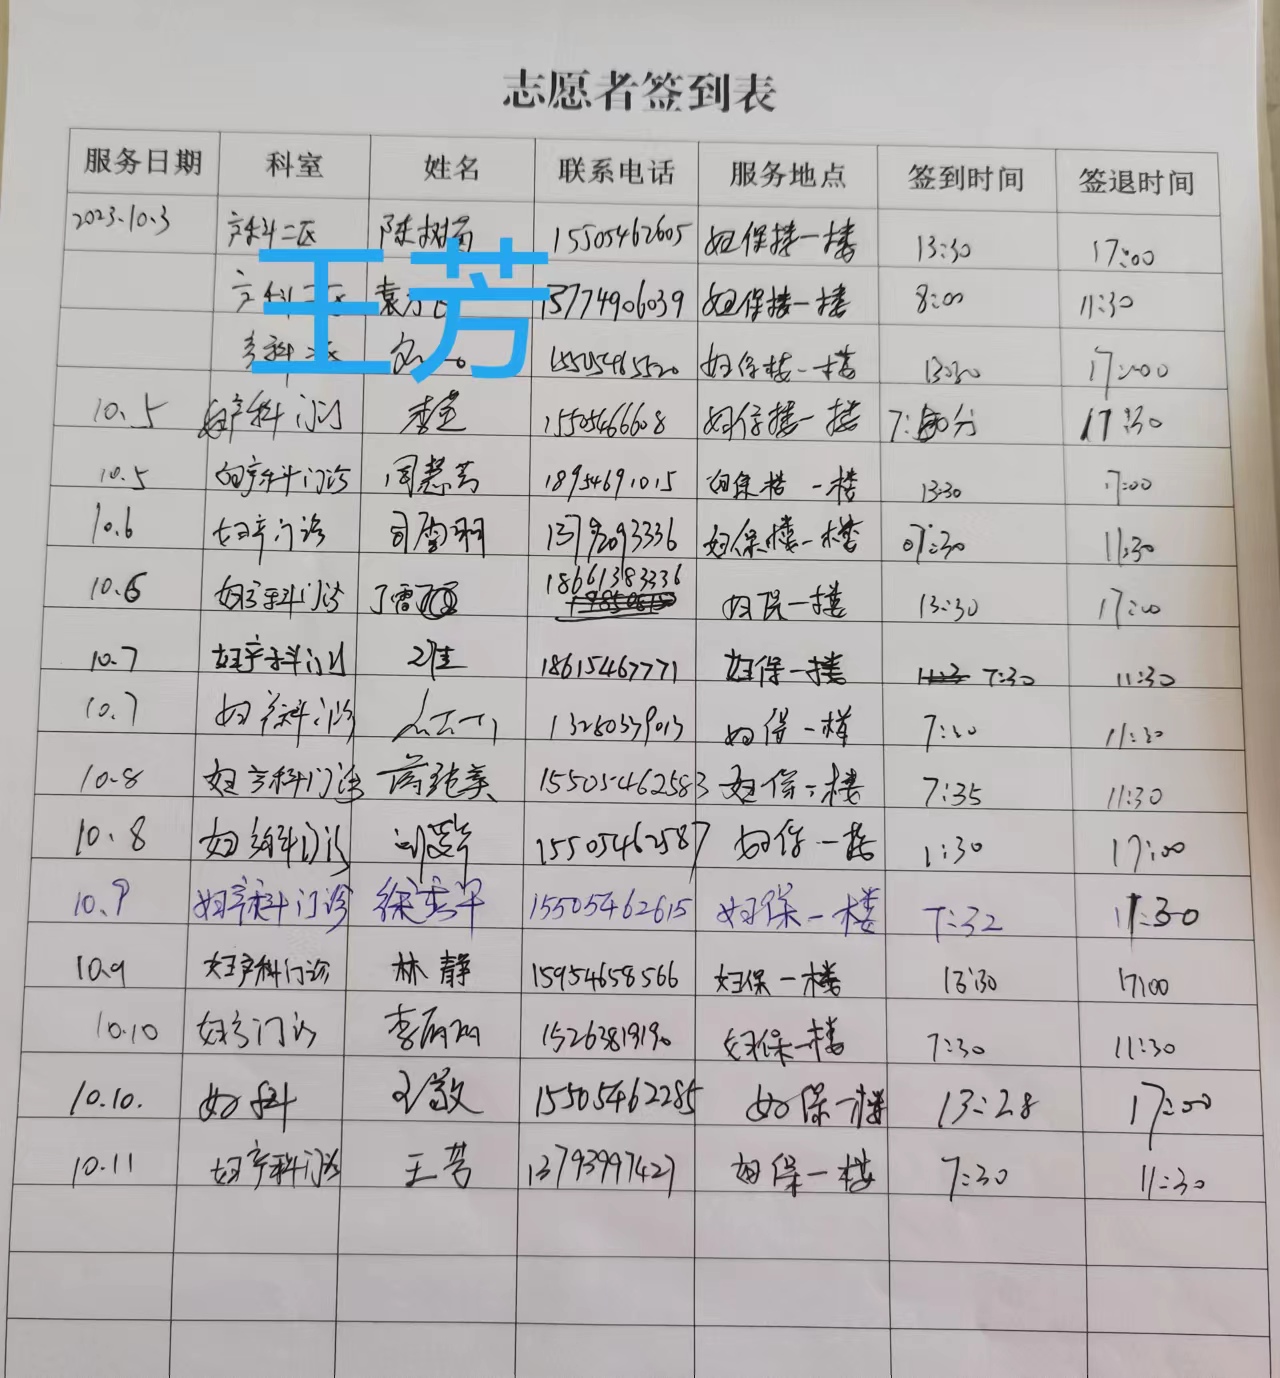 志愿者签到表
服务日期 科室 姓名 联系电话 服务地点 签到时间 签退时间
2023.10.3 产科二区 陈树 15505462605 妇保楼一楼 13:30 17:00
王芳
产科二区 袁 13774906039 妇保楼一楼 8:00 11:30
产科二区 15505465520 妇保楼一楼 13:30 17:00
10.5 妇产科门诊 15505466608 妇保楼一楼 17:30
10.5 妇产科门诊 周慧芳 18954691015 妇保楼一楼 13:30 17:00
10.6 妇产门诊 司雪羽 13792093336 妇保楼一楼 07:30 11:30
10.6 妇产科门诊 丁雪 18661383336 妇保一楼 13:30 17:00
10.7 妇产科门诊 18615467771 妇保一楼 7:30 11:30
10.7 妇产科门诊 13280379013 妇保一楼 7:30 11:30
10.8 妇产科门诊 15505462583 妇保一楼 7:35 11:30
10.8 妇产科门诊 15505462587 妇保一楼 1:30 17:00
10.9 妇产科门诊 徐秀平 15505462615 妇保一楼 7:32 11:30
10.9 妇产科门诊 林静 15954658566 妇保一楼 13:30 17:00
10.10 妇产门诊 李 15263819190 妇保一楼 7:30 11:30
10.10. 妇科 王敬 15505462285 妇保一楼 13:28 17:00
10.11 妇产科门诊 王芳 13793997427 妇保一楼 7:30 11:30